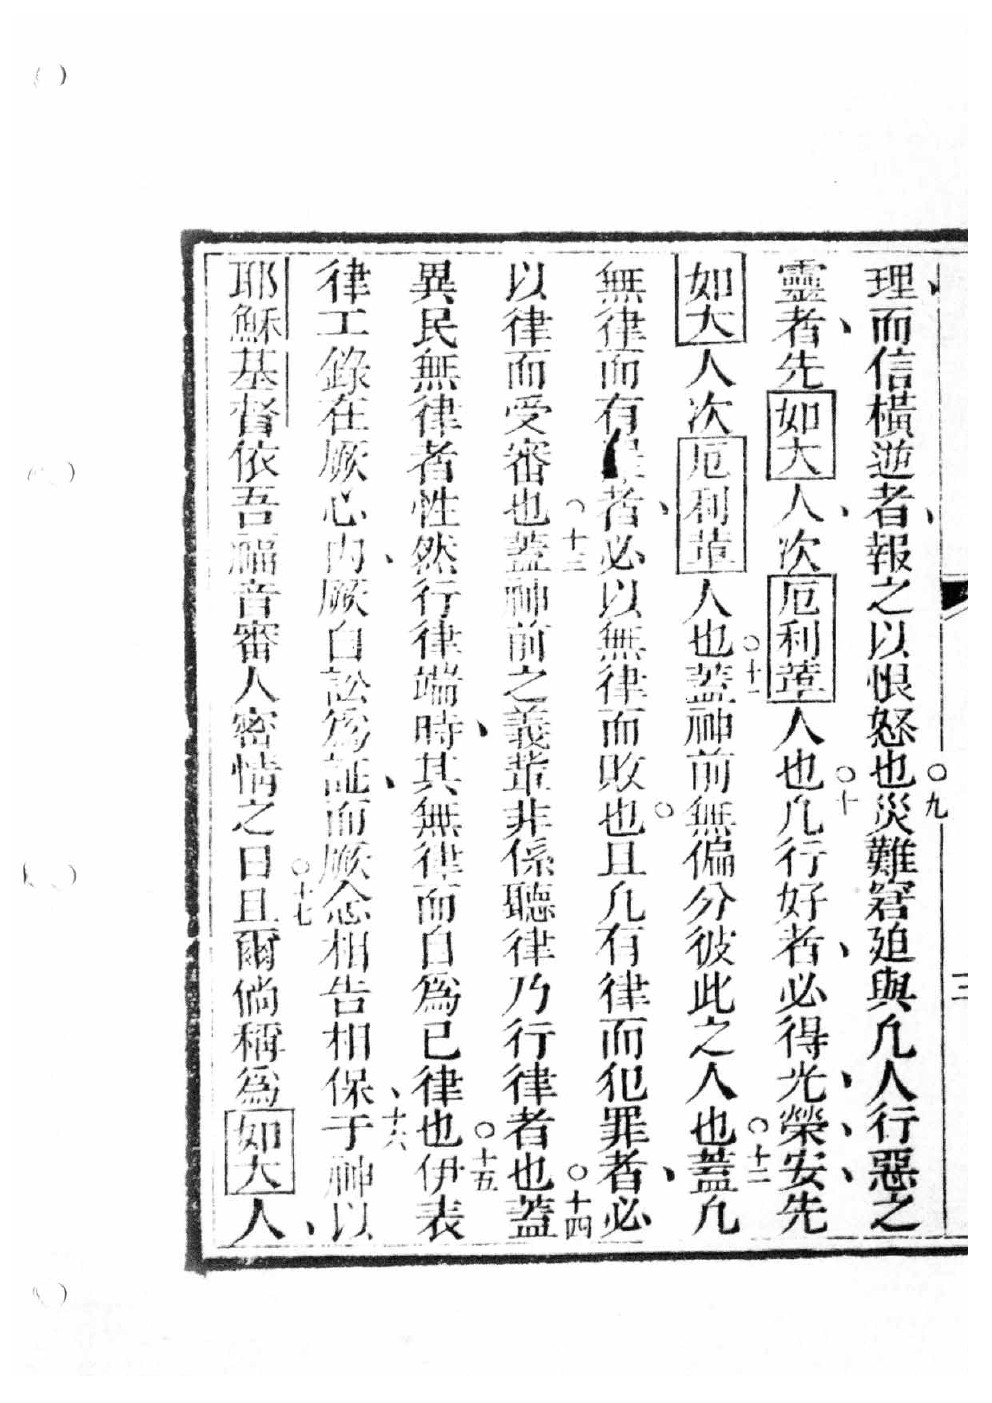 理、而信橫逆者、報之以恨怒也○九災難窘迫與凡人行惡之
靈者、先如大人、次厄利董人也○十凡行好者、必得光、榮、安、先
如大人次厄利董人也○十一蓋神前無偏分彼此之人也○十二蓋凡
無律而有者、必以無律而敗也○且凡有律而犯罪者、必
以律而受審也○十三蓋神前之義輩非係聽律乃行律者也○十四蓋
異民無律者性然行律端時、其無律而自為已律也○十五伊表
律工錄在厥心內、厥自訟為証、而厥念相告相保、十六于神以
耶穌基督依吾福音審人密情之日○十七且爾倘稱為如大人、
三